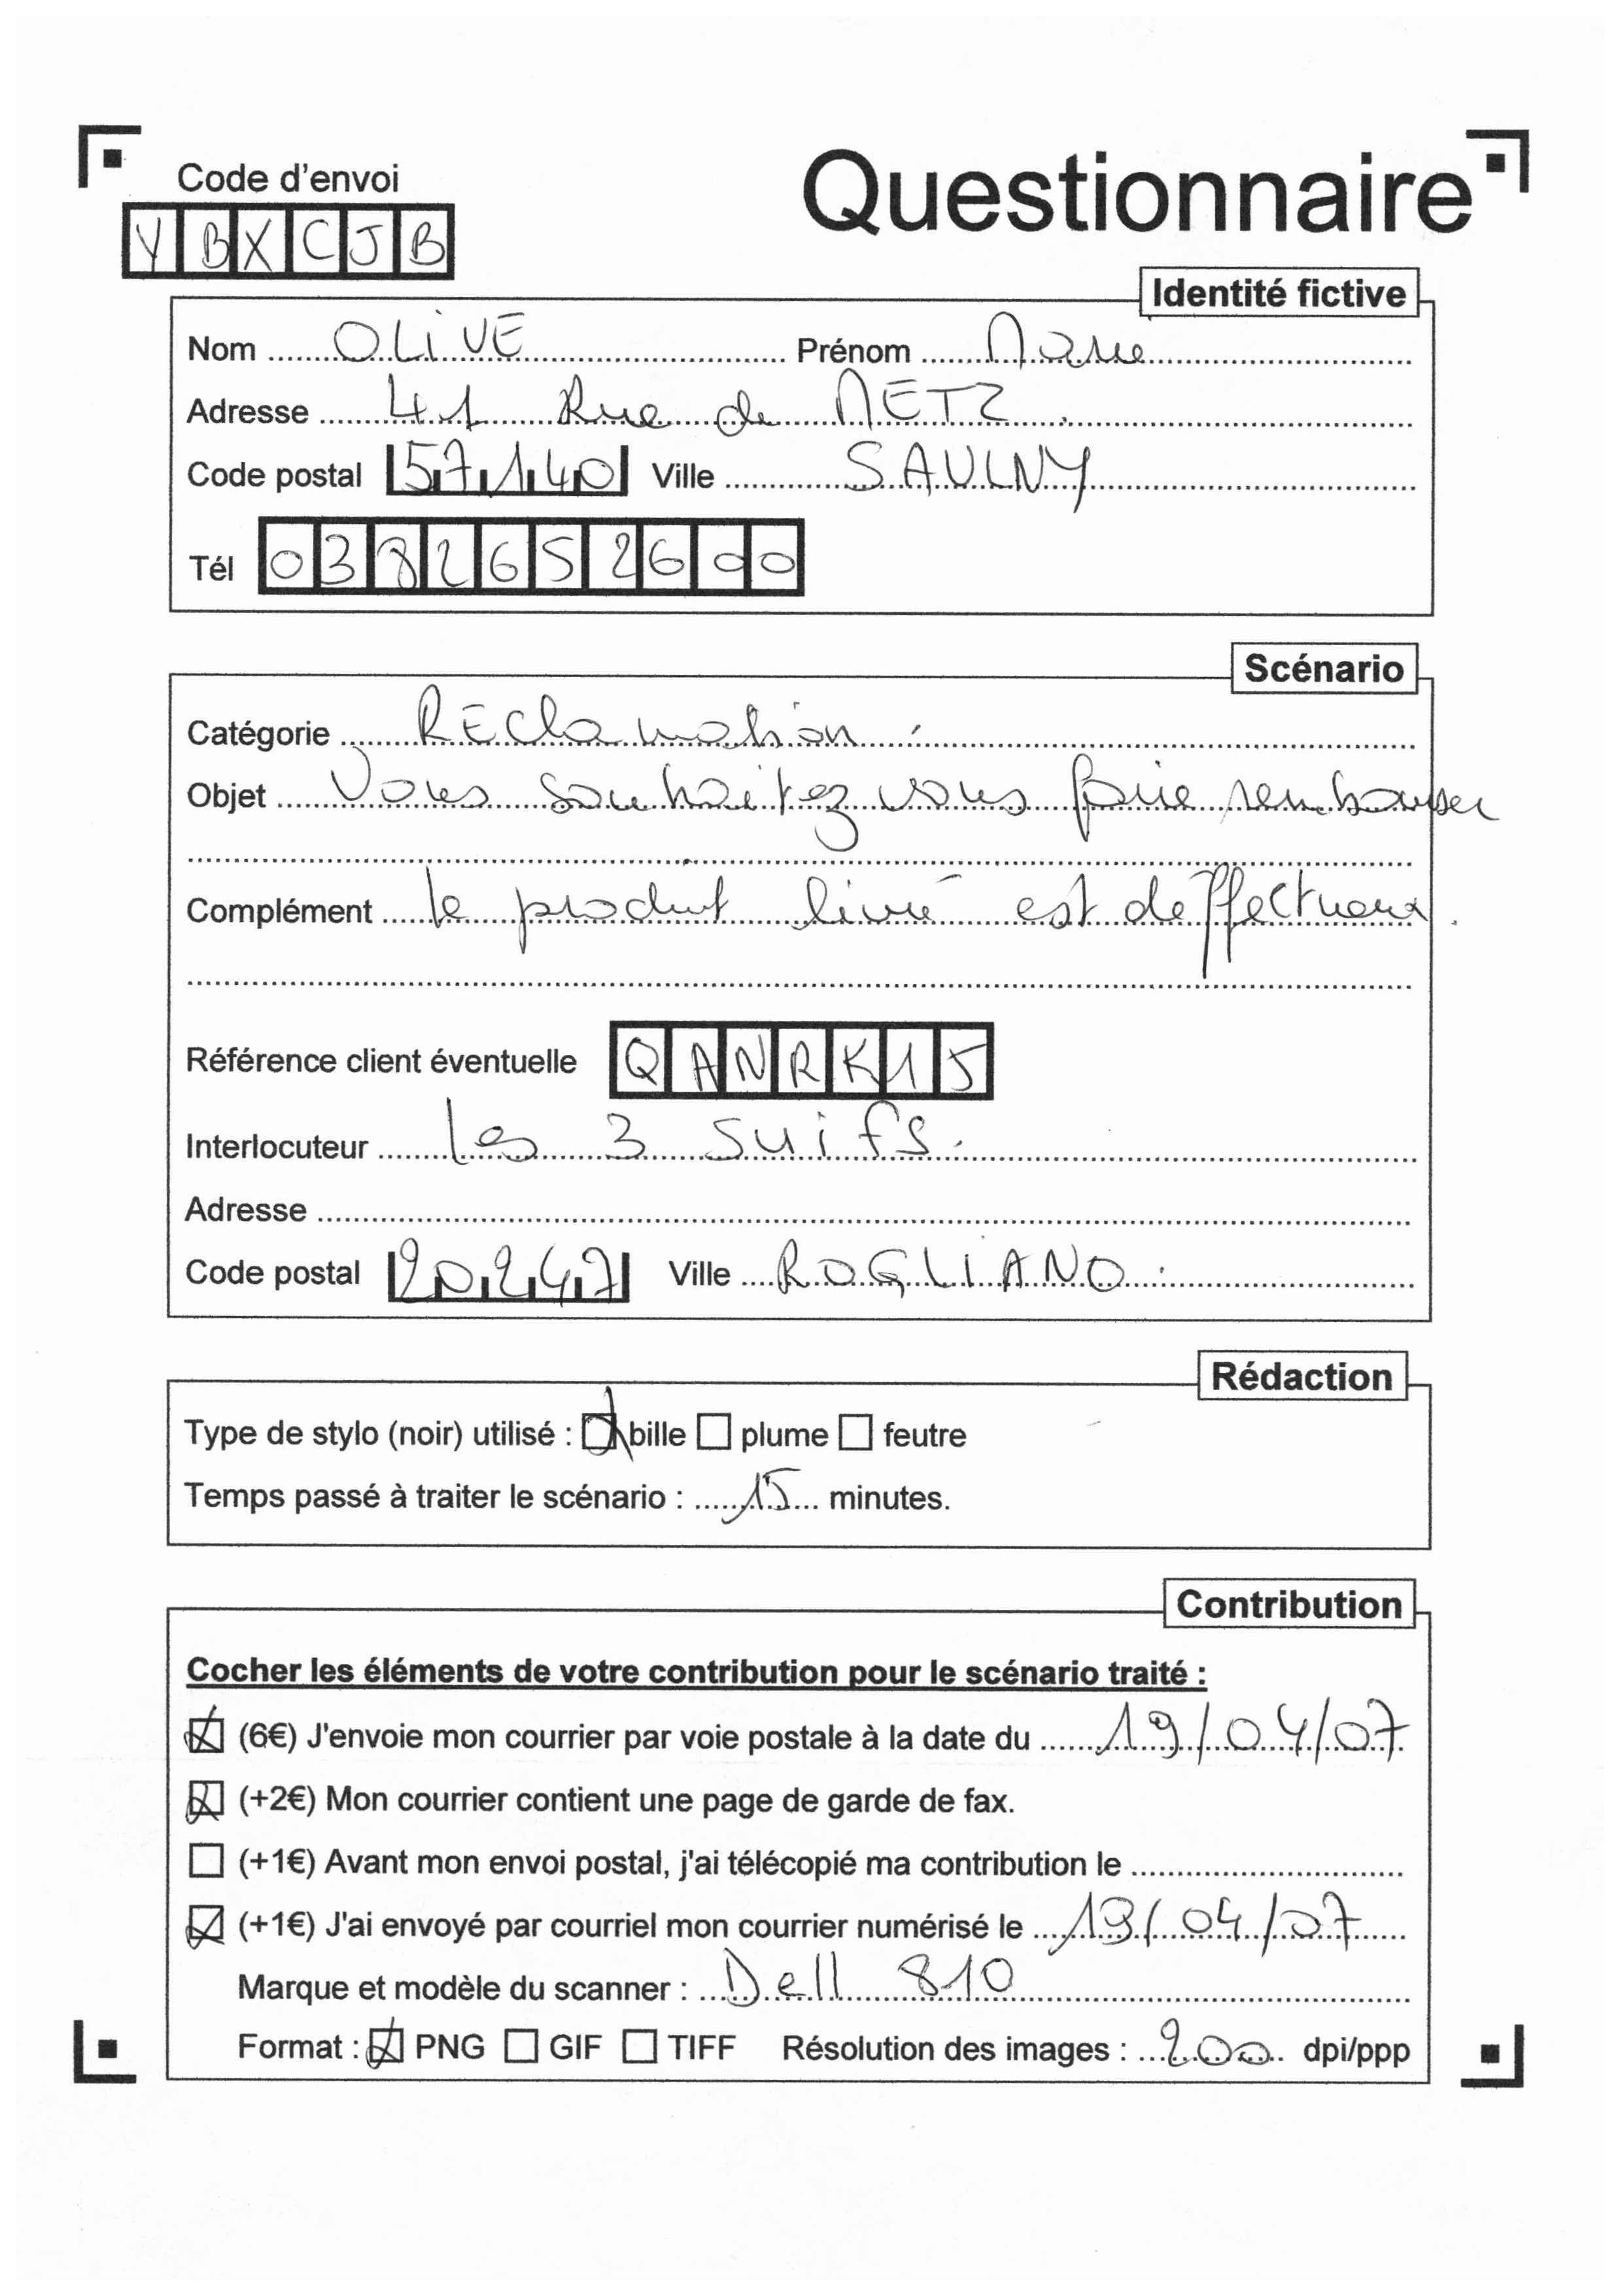 Code d'envoi
Questionnaire
Y B X C J B
Identité fictive
Nom OLIVE Prénom Marie
Adresse 41 Rue de METZ.
Code postal 57140 Ville SAULNY
Tél 0382652600
Scénario
Catégorie REclamation.
Objet Vous souhaitez vous faire rembourser
Complément le produit livré est deffectueux.
Référence client éventuelle QANRK15
Interlocuteur les 3 suifs.
Adresse
Code postal 20247 Ville ROGLIANO.
Rédaction
Type de stylo (noir) utilisé : bille plume feutre
Temps passé à traiter le scénario : 15 minutes.
Contribution
Cocher les éléments de votre contribution pour le scénario traité :
(6€) J'envoie mon courrier par voie postale à la date du 19/04/07
(+2€) Mon courrier contient une page de garde de fax.
(+1€) Avant mon envoi postal, j'ai télécopié ma contribution le
(+1€) J'ai envoyé par courriel mon courrier numérisé le 19/04/07
Marque et modèle du scanner : Dell 810
Format : PNG GIF TIFF Résolution des images : 200 dpi/ppp